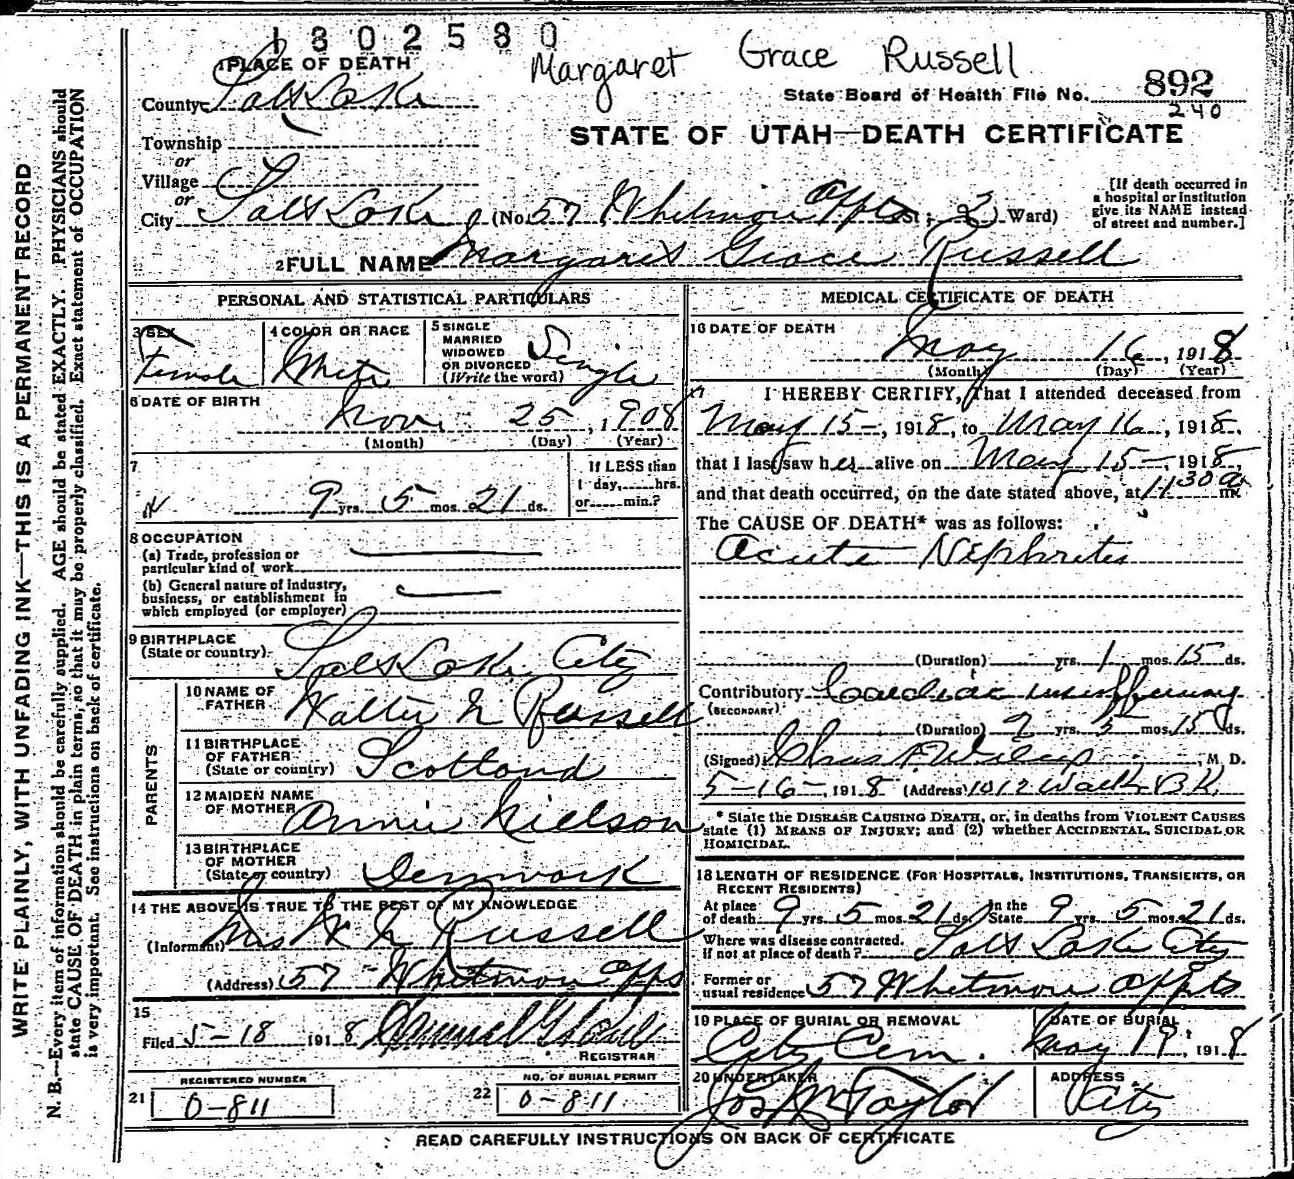 1802580
Margaret Grace Russell
1 PLACE OF DEATH
County Salt Lake
State Board of Health File No. 892
240
Township
or
Village
or
STATE OF UTAH—DEATH CERTIFICATE
City Salt Lake (No. 57 Whitmore Appts St.; 3 Ward)
[If death occurred in
a hospital or institution
give its NAME instead
of street and number.]
2 FULL NAME Margaret Grace Russell
PERSONAL AND STATISTICAL PARTICULARS
3 SEX
Female
4 COLOR OR RACE
White
5 SINGLE
MARRIED
WIDOWED
OR DIVORCED
(Write the word)
Single
6 DATE OF BIRTH
Nov. 25, 1908
(Month) (Day) (Year)
7
9 yrs. 5 mos. 21 ds.
If LESS than
1 day, hrs.
or min.?
8 OCCUPATION
(a) Trade, profession or
particular kind of work
(b) General nature of industry,
business, or establishment in
which employed (or employer)
9 BIRTHPLACE
(State or country)
Salt Lake City
PARENTS
10 NAME OF
FATHER
Walter Russell
11 BIRTHPLACE
OF FATHER
(State or country)
Scotland
12 MAIDEN NAME
OF MOTHER
Annie Nielson
13 BIRTHPLACE
OF MOTHER
(State or country)
Denmark
14 THE ABOVE IS TRUE TO THE BEST OF MY KNOWLEDGE
(Informant) Mrs Russell
(Address) 57 Whitmore Apps
15
Filed 5-18 1918
REGISTRAR
REGISTERED NUMBER
21 0-811
NO. OF BURIAL PERMIT
22 0-811
MEDICAL CERTIFICATE OF DEATH
16 DATE OF DEATH
May 16, 1918
(Month) (Day) (Year)
17
I HEREBY CERTIFY, That I attended deceased from
May 15-, 1918, to May 16, 1918,
that I last saw her alive on May 15-, 1918,
and that death occurred, on the date stated above, at 1130a m.
The CAUSE OF DEATH* was as follows:
Acute Nephritis
(Duration) yrs. 1 mos. 15 ds.
Contributory Cardiac insufficiency
(SECONDARY)
(Duration) yrs. 5 mos. 15 ds.
(Signed) Chas, M. D.
5-16-, 1918 (Address) 1012 Walk. BK.
* State the DISEASE CAUSING DEATH, or, in deaths from VIOLENT CAUSES
state (1) MEANS OF INJURY; and (2) whether ACCIDENTAL, SUICIDAL OR
HOMICIDAL.
18 LENGTH OF RESIDENCE (FOR HOSPITALS, INSTITUTIONS, TRANSIENTS, OR
RECENT RESIDENTS)
At place
of death 9 yrs. 5 mos. 21 ds.
In the
State 9 yrs. 5 mos. 21 ds.
Where was disease contracted.
if not at place of death? Salt Lake City
Former or
usual residence 57 Whitmore Appts
19 PLACE OF BURIAL OR REMOVAL
City Cem.
DATE OF BURIAL
May 19, 1918
20 UNDERTAKER
Jos Wm Taylor
ADDRESS
City
READ CAREFULLY INSTRUCTIONS ON BACK OF CERTIFICATE
WRITE PLAINLY, WITH UNFADING INK—THIS IS A PERMANENT RECORD
N. B.—Every item of information should be carefully supplied. AGE should be stated EXACTLY. PHYSICIANS should
state CAUSE OF DEATH in plain terms, so that it may be properly classified. Exact statement of OCCUPATION
is very important. See instructions on back of certificate.